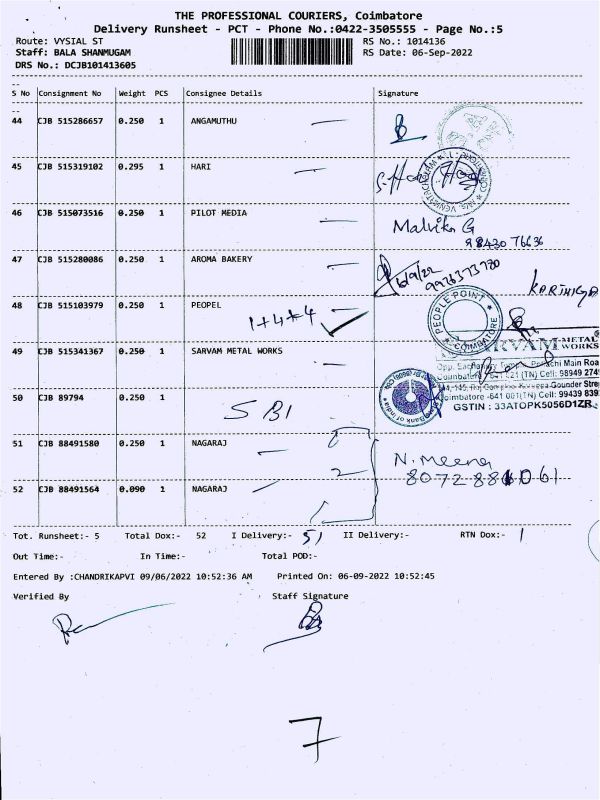 THE PROFESSIONAL COURIERS, Coimbatore
Delivery Runsheet - PCT - Phone No.:0422-3505555 - Page No.:5
Route: VYSIAL ST RS No.: 1014136
Staff: BALA SHANMUGAM RS Date: 06-Sep-2022
DRS No.: DCJB101413605
S No Consignment No Weight PCS Consignee Details Signature
44 CJB 515286657 0.250 1 ANGAMUTHU
45 CJB 515319102 0.295 1 HARI
46 CJB 515073516 0.250 1 PILOT MEDIA
Malvika G
98430 76636
47 CJB 515280086 0.250 1 AROMA BAKERY
6/9/22
KARTHIGA
48 CJB 515103979 0.250 1 PEOPEL
1+4+4
PEOPLE POINT
COIMBATORE
49 CJB 515341367 0.250 1 SARVAM METAL WORKS
SARVAM METAL WORKS
50 CJB 89794 0.250 1
SBI
GSTIN : 33ATOPK5056D1ZR
51 CJB 88491580 0.250 1 NAGARAJ
N. Meena
52 CJB 88491564 0.090 1 NAGARAJ
Tot. Runsheet:- 5 Total Dox:- 52 I Delivery:- 51 II Delivery:- RTN Dox:- 1
Out Time:- In Time:- Total POD:-
Entered By :CHANDRIKAPVI 09/06/2022 10:52:36 AM Printed On: 06-09-2022 10:52:45
Verified By Staff Signature
7